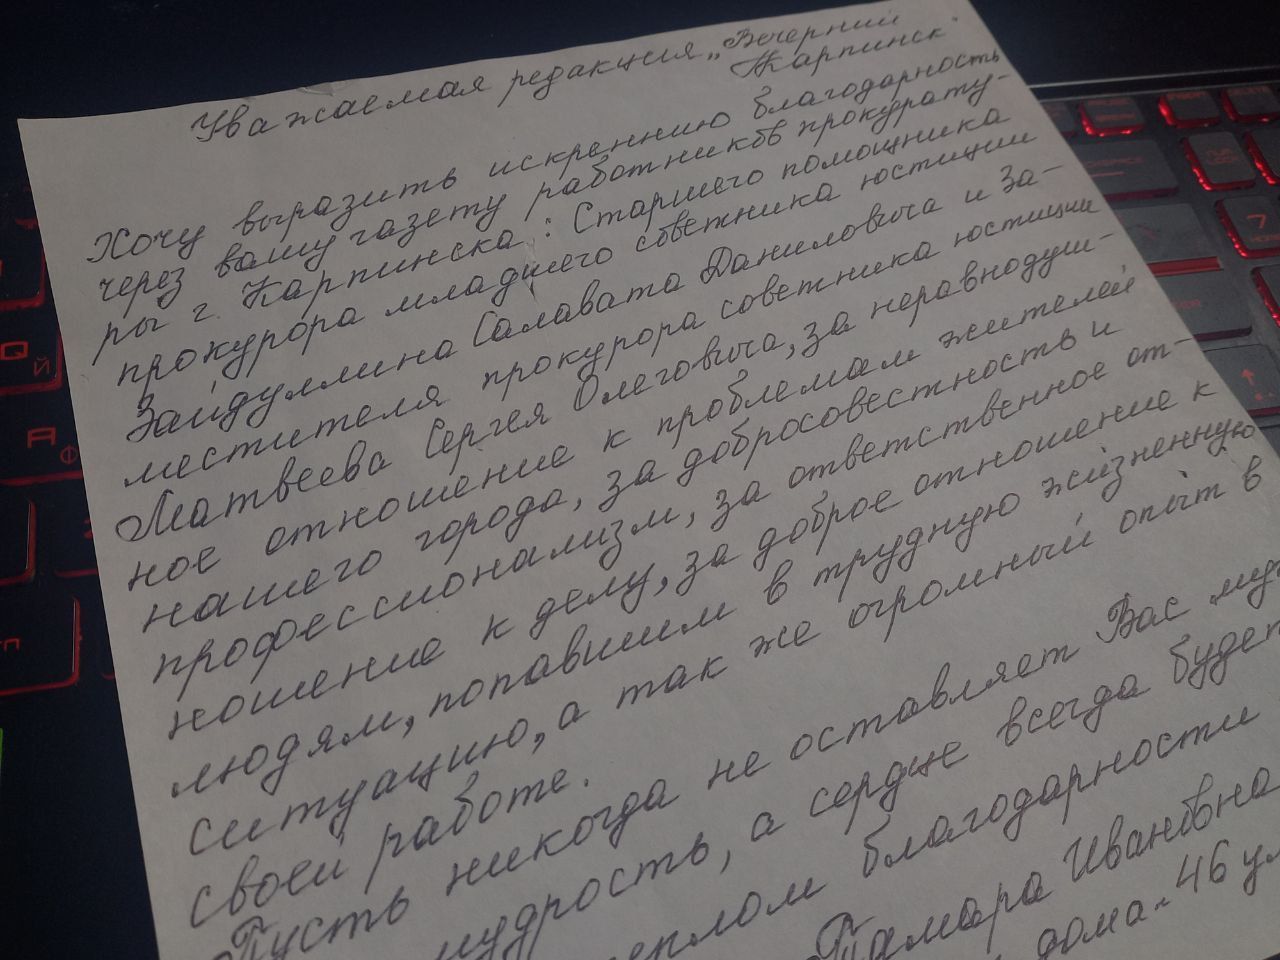 Уважаемая редакция „Вечерний
Карпинск"
Хочу выразить искреннию благодарность
через вашу газету работников прокурату-
ры г. Карпинска: Старшего помощника
прокурора младшего советника юстиции
Зайдуллина Салавата Даниловича и За-
местителя прокурора советника юстиции
Матвеева Сергея Олеговича, за неравнодуш-
ное отношение к проблемам жителей
нашего города, за добросовестность и
профессионализм, за ответственное от-
ношение к делу, за доброе отношение к
людям, попавшим в трудную жизненную
ситуацию, а так же огромный опыт в
своей работе.
Пусть никогда не оставляет Вас
мудрость, а сердце всегда будет
теплом благодарности
Тамара Ивановна
дома - 46 ул